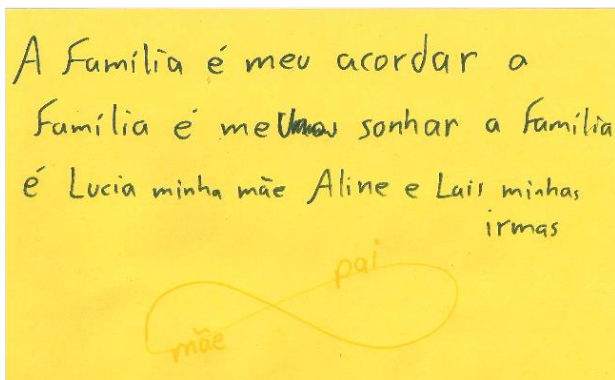 A Família é meu acordar a
Família é meu sonhar a Família
é Lucia minha mãe Aline e Lais minhas
irmas
pai
mãe